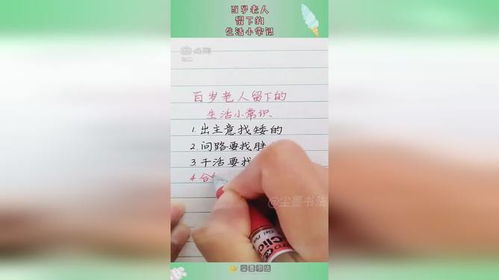 百岁老人
留下的
生活小常识
百岁老人留下的
生活小常识
1.出主意找矮的
2.问路要找胖
3.干活要找
4.合
@尘墨书法